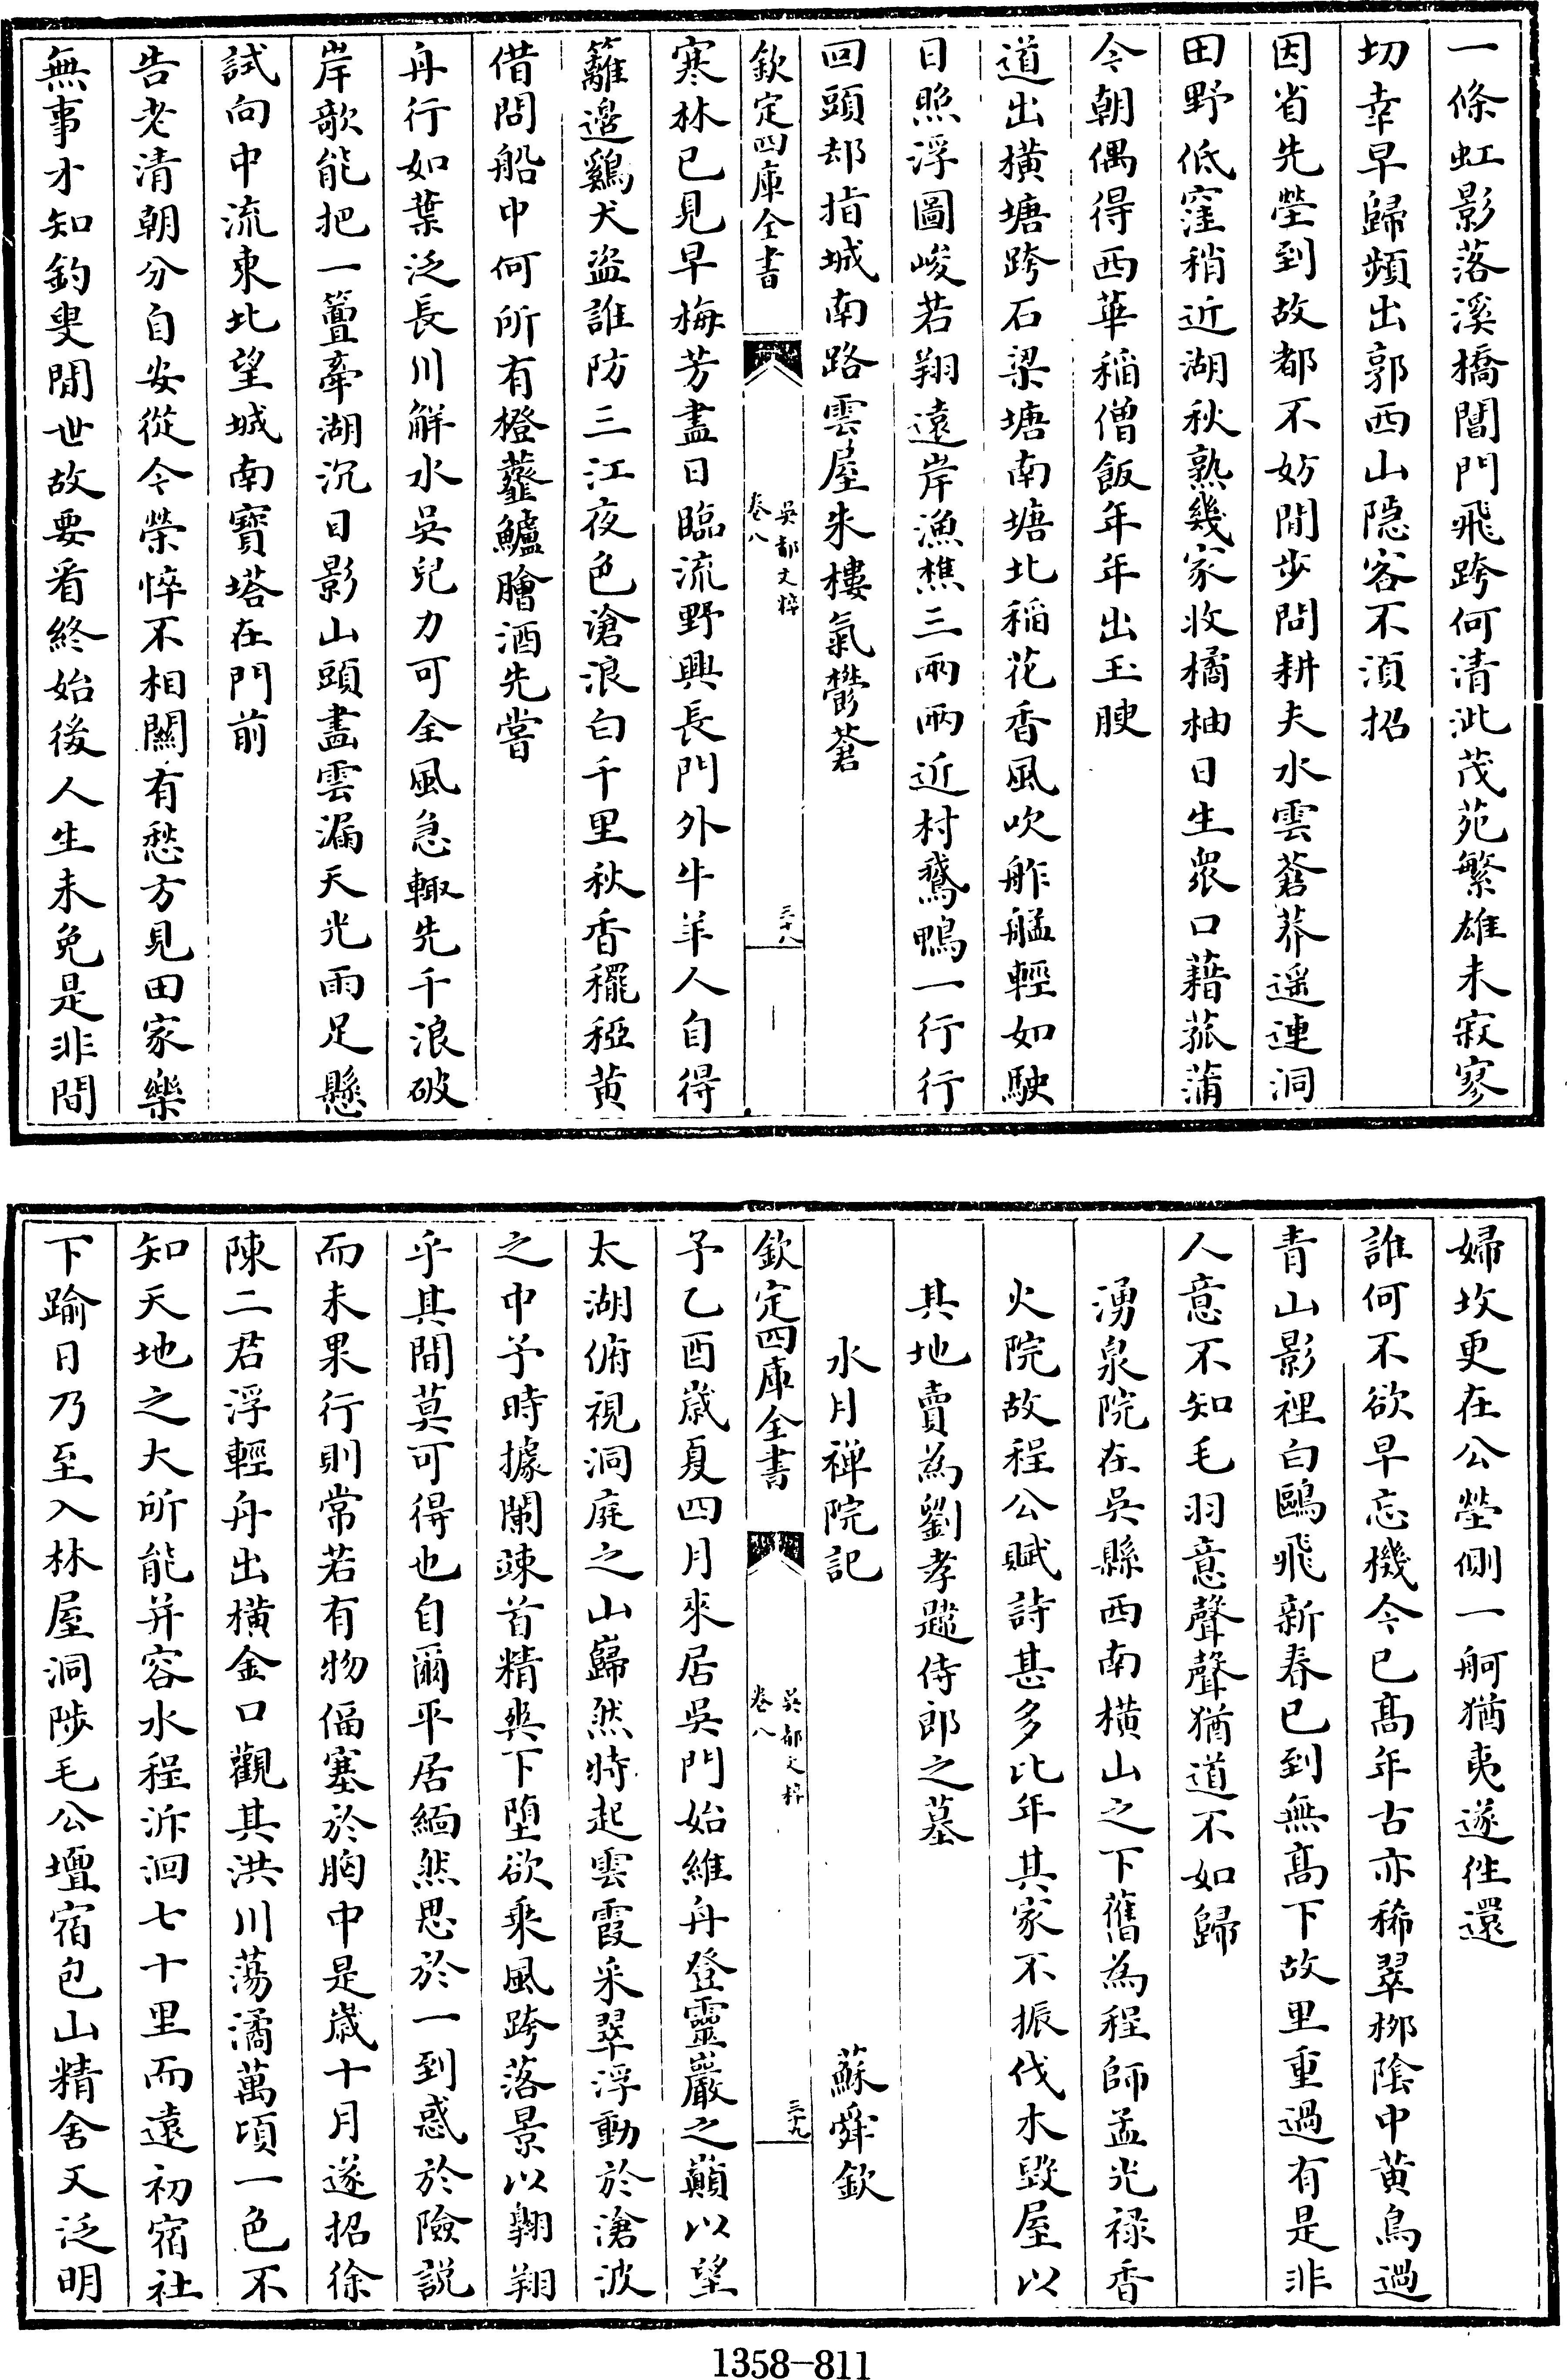 一條虹影落溪橋閶門飛跨何清泚茂苑繁雄未寂寥
切幸早歸頻出郭西山隱客不湏招
因省先塋到故都不妨閒步問耕夫水雲蒼莽遥連洞
田野低窪稍近湖秋熟幾家收橘柚日生衆口藉菰蒲
今朝偶得西華稲僧飯年年出玉腴
道出橫塘跨石梁塘南塘北稻花香風吹舴艋輕如駛
日照浮圖峻若翔遠岸漁樵三兩兩近村鵞鴨一行行
回頭却指城南路雲屋朱樓氣鬱蒼
欽定四庫全書
吳都文粹
卷八
三十八
寒林已見早梅芳盡日臨流野興長門外牛羊人自得
籬邊鷄犬盜誰防三江夜色滄浪白千里秋香䆉稏黄
借問船中何所有橙虀鱸膾酒先嘗
舟行如葉泛長川解水吳兒力可全風急輙先千浪破
岸歌能把一簹牽湖沉日影山頭盡雲漏天光雨足懸
試向中流東北望城南寶塔在門前
告老清朝分自安從今榮悴不相關有愁方見田家樂
無事才知釣叟閒世故要看終始後人生未免是非間
婦坟更在公塋側一舸猶夷遂徃還
誰何不欲早忘機今已髙年古亦稀翠栁陰中黄鳥過
青山影裡白鷗飛新春已到無髙下故里重過有是非
人意不知毛羽意聲聲猶道不如歸
湧泉院在吳縣西南横山之下舊為程師孟光禄香
火院故程公賦詩甚多比年其家不振伐木毀屋以
其地賣為劉孝韙侍郎之墓
水月禪院記
蘇舜欽
欽定四庫全書
吳都文粹
卷八
三十九
予乙酉嵗夏四月來居吳門始維舟登靈巖之巔以望
太湖俯視洞庭之山巋然特起雲霞采翠浮動於滄波
之中予時據闌竦首精爽下墮欲乘風跨落景以翺翔
乎其間莫可得也自爾平居緬然思於一到惑於險説
而未果行則常若有物偪塞於胸中是嵗十月遂招徐
陳二君浮輕舟出橫金口觀其洪川蕩潏萬頃一色不
知天地之大所能并容水程泝洄七十里而遠初宿社
下踰日乃至入林屋洞陟毛公壇宿包山精舍又泛明
1358-811